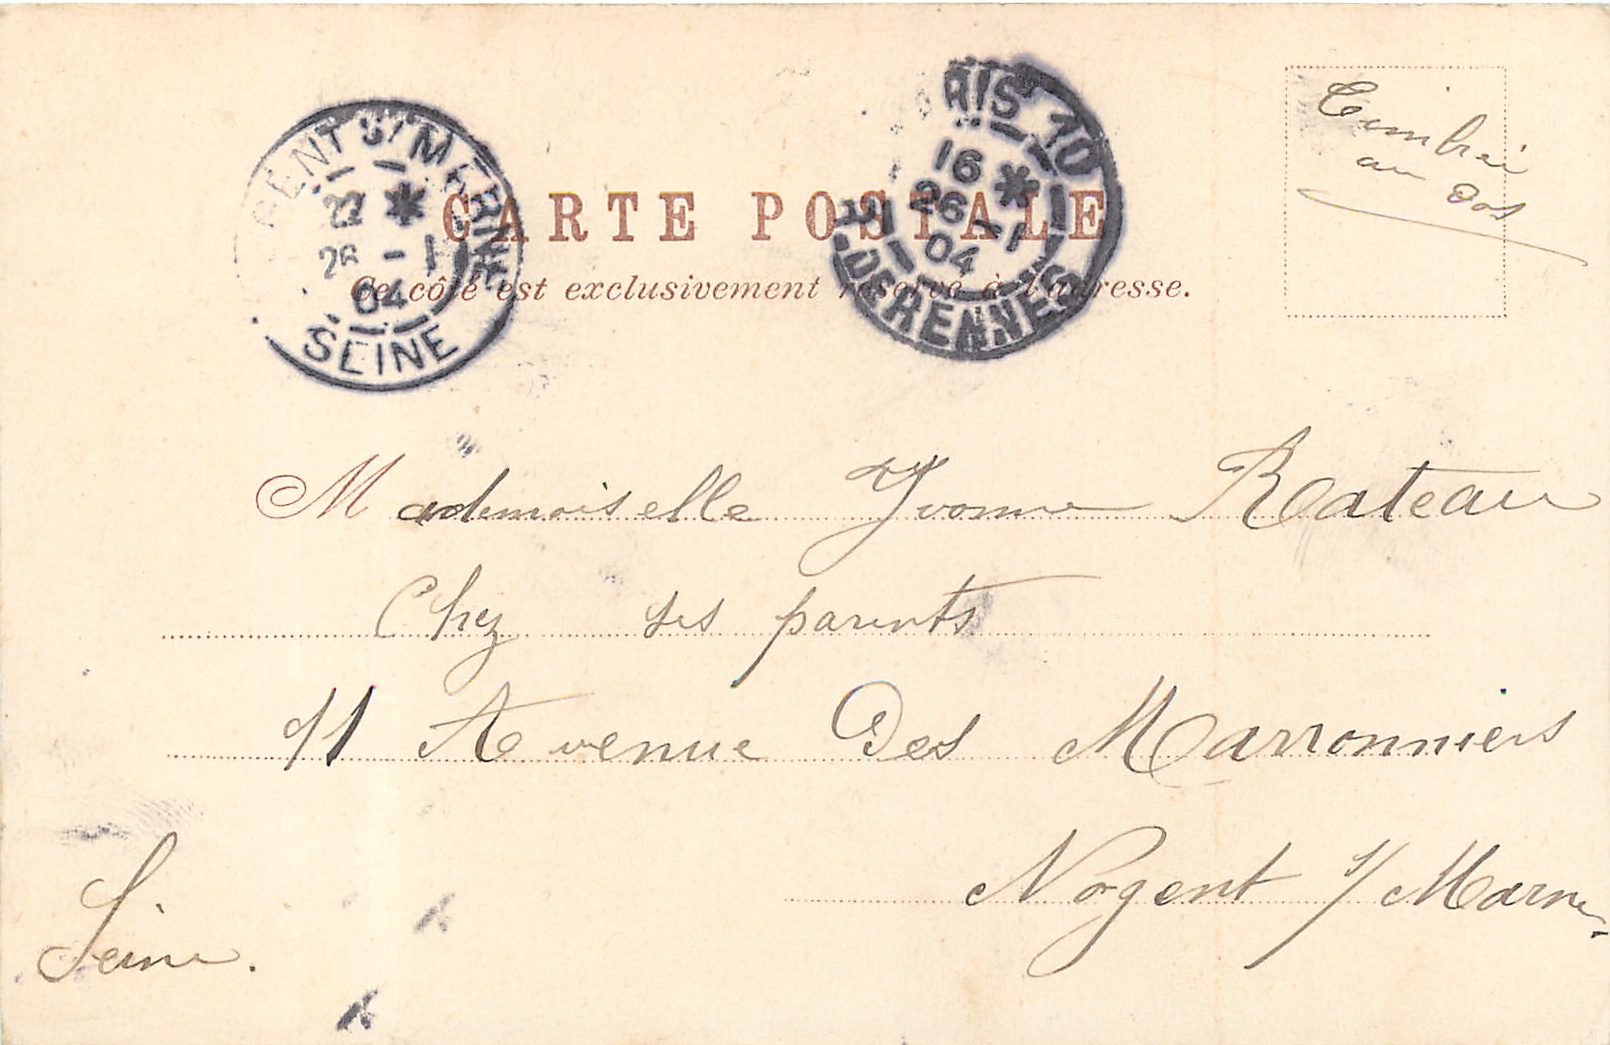 CARTE POSTALE
Ce côté est exclusivement réservé à l'adresse.
GENT S/ MERNE
22 *
26 - 1
04
SEINE
RIS 10
16 *
26 - 1
04
R. DE RENNES
Timbrée
au dos
Mademoiselle Yvonne Rateau
Chez ses parents
11 Avenue Des Marronniers
Nogent s/ Marne
Seine.